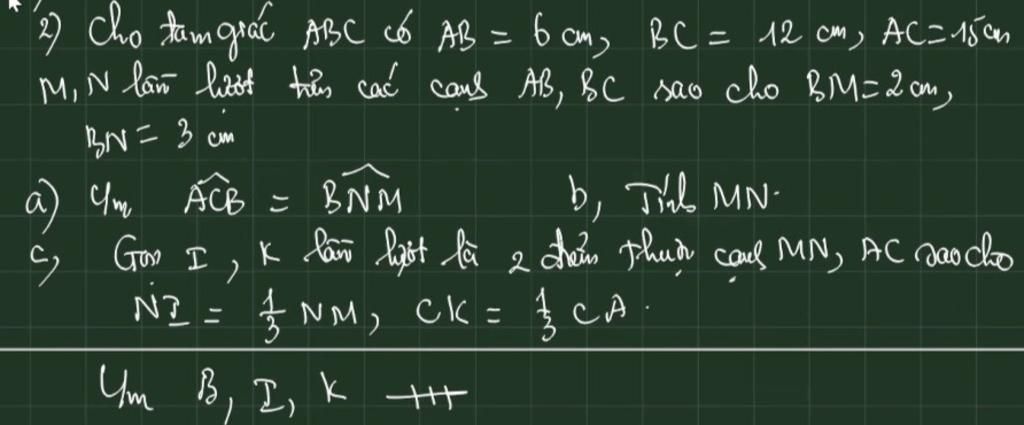 2) Cho tam giác ABC có AB = 6 cm, BC = 12 cm, AC = 15 cm
M, N lần lượt trên các cạnh AB, BC sao cho BM = 2 cm,
BN = 3 cm
a) Cm ACB = BNM b, Tính MN.
c, Gọi I, K lần lượt là 2 điểm thuộc cạnh MN, AC sao cho
NI = 1/3 NM, CK = 1/3 CA.
Cm B, I, K